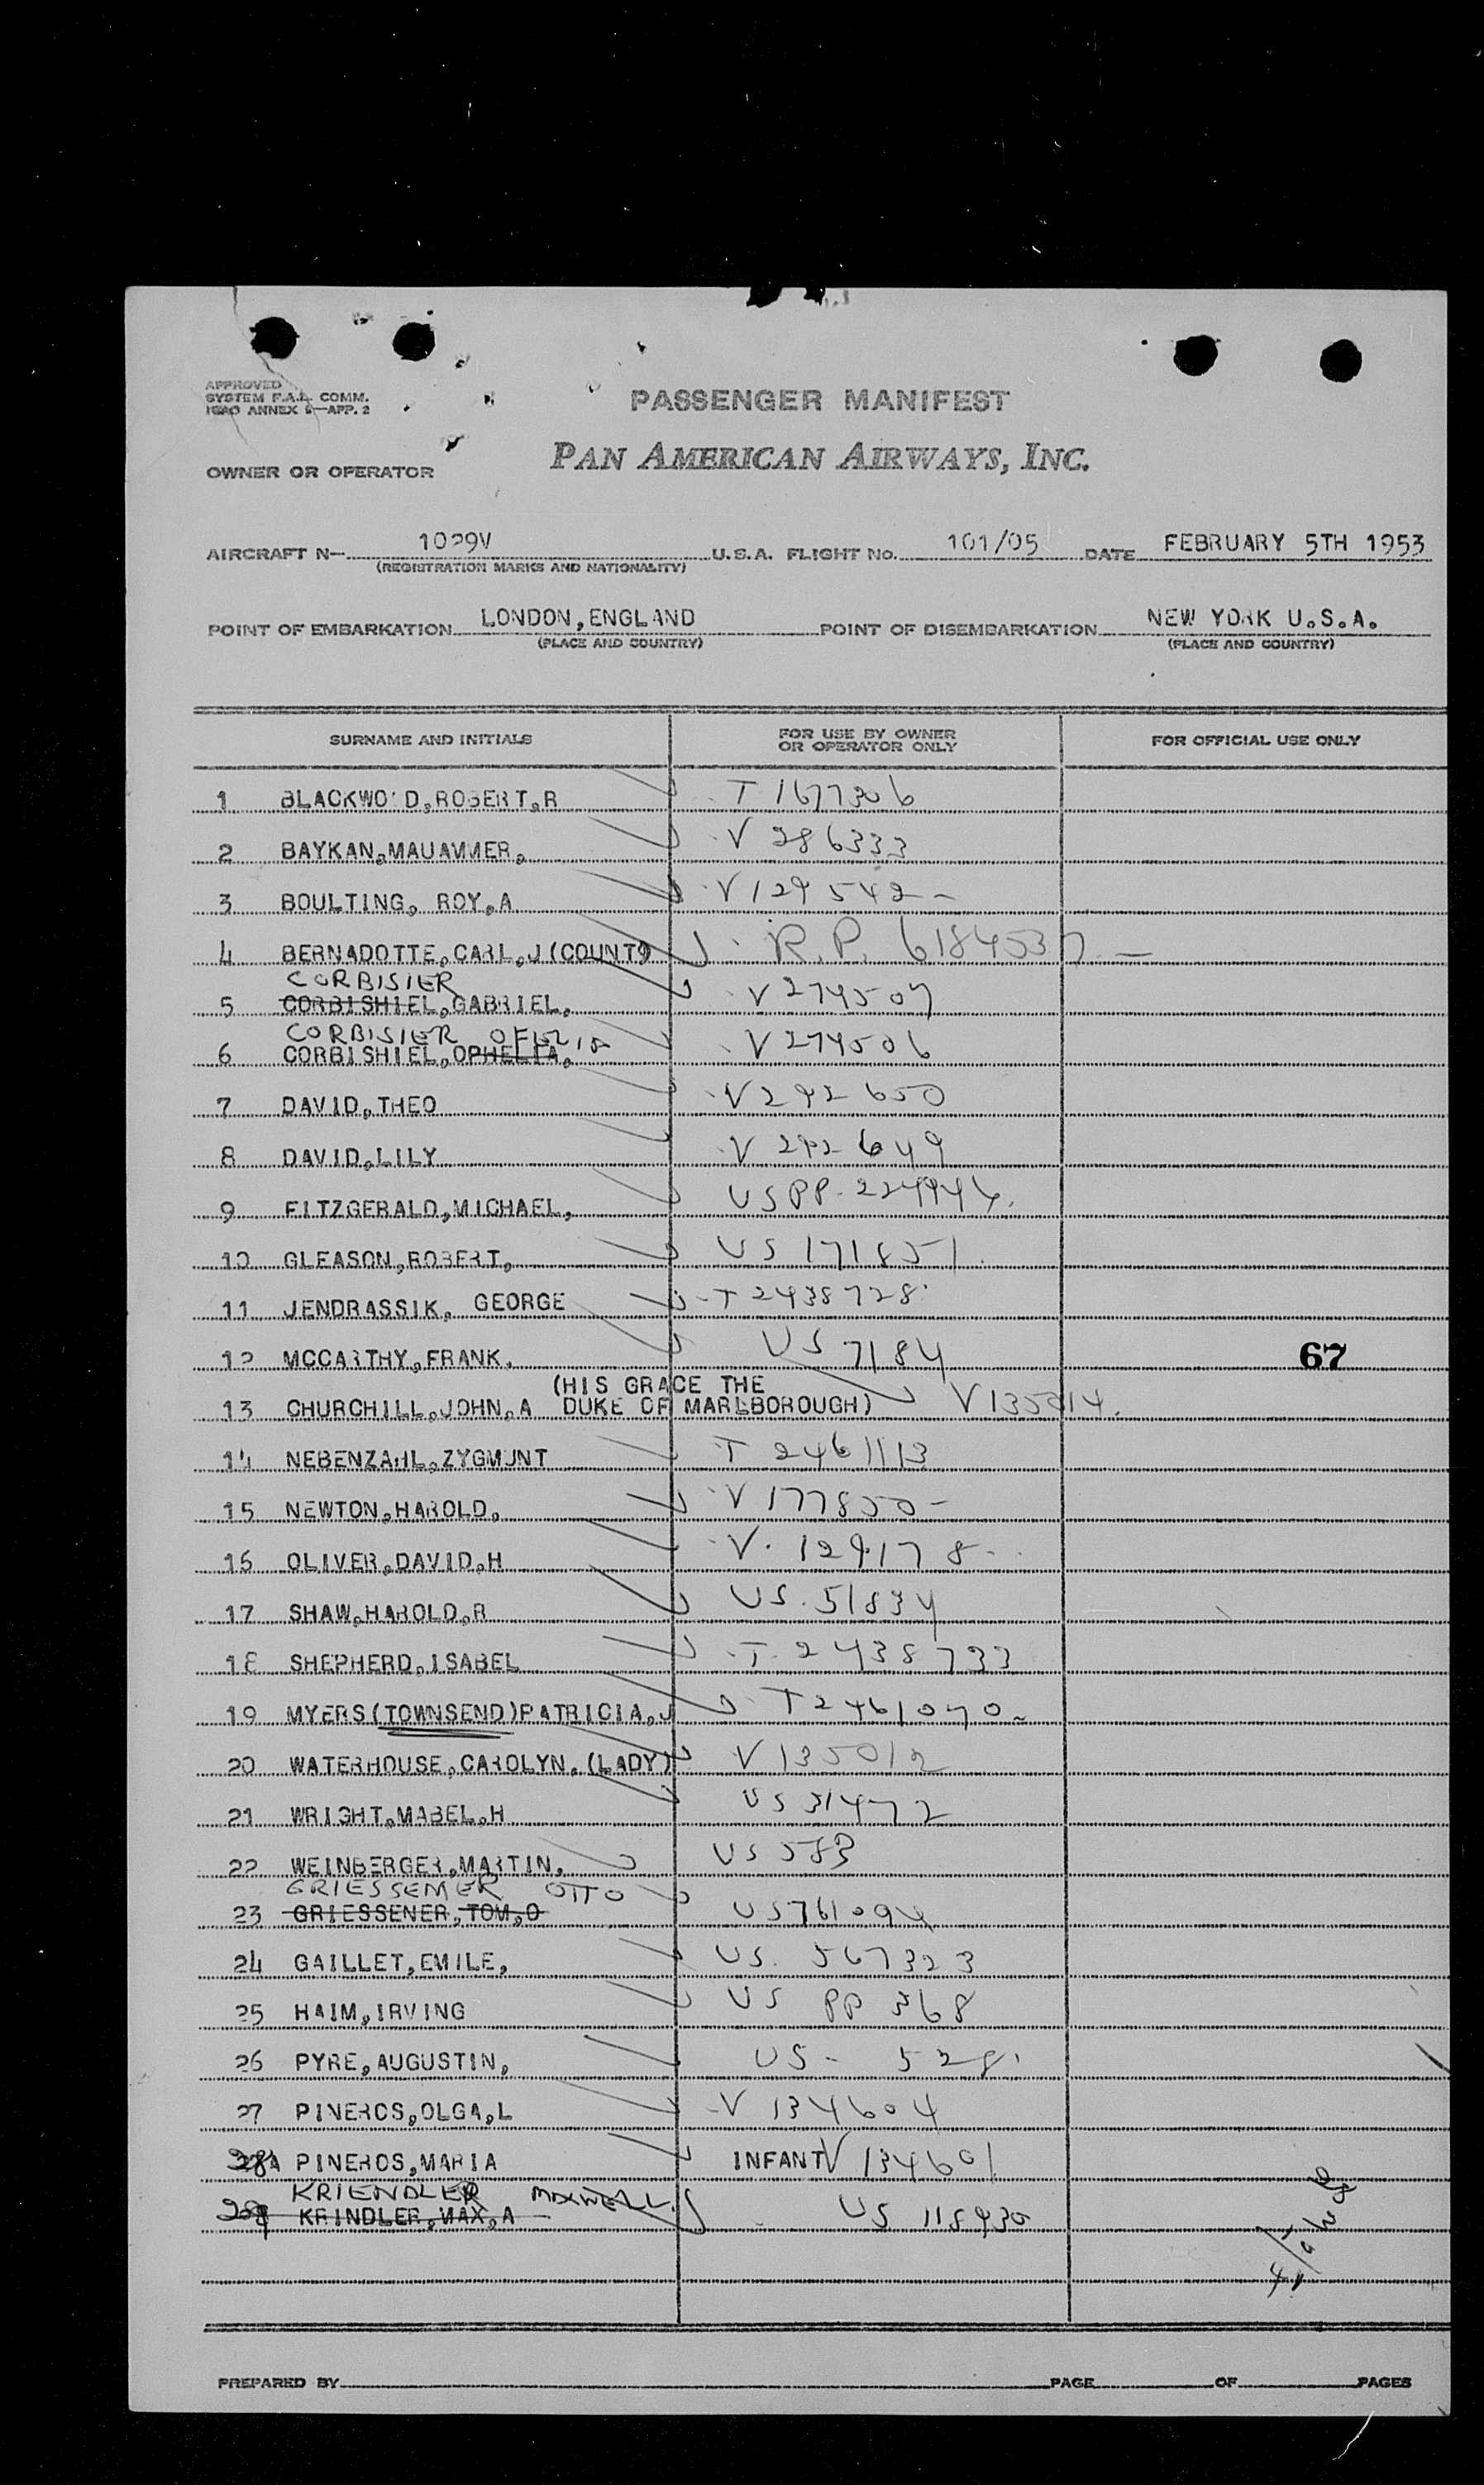 APPROVED
SYSTEM F.A.L. COMM.
ICAO ANNEX 9—APP. 2
PASSENGER MANIFEST
OWNER OR OPERATOR PAN AMERICAN AIRWAYS, INC.
AIRCRAFT N- 1029V U.S.A. FLIGHT No. 101/05 DATE FEBRUARY 5TH 1953
(REGISTRATION MARKS AND NATIONALITY)
POINT OF EMBARKATION LONDON,ENGLAND POINT OF DISEMBARKATION NEW YORK U.S.A.
(PLACE AND COUNTRY) (PLACE AND COUNTRY)
SURNAME AND INITIALS FOR USE BY OWNER OR OPERATOR ONLY FOR OFFICIAL USE ONLY
1 BLACKWOOD,ROBERT,R T 1677306
2 BAYKAN,MAUAMMER, V 286333
3 BOULTING, ROY,A V129542-
4 BERNADOTTE,CARL,J(COUNT) R.P. 618453
CORBISIER
5 CORBISHIEL,GABRIEL, V274507
CORBISIER OFELIA
6 CORBISHIEL,OPHELIA, V274506
7 DAVID,THEO V292650
8 DAVID,LILY V 292649
9 FITZGERALD,MICHAEL, US PP
10 GLEASON,ROBERT, US 171851
11 JENDRASSIK, GEORGE T2438728
12 MCCARTHY,FRANK, US 7184 67
(HIS GRACE THE
13 CHURCHILL,JOHN,A DUKE OF MARLBOROUGH) V135014.
14 NEBENZAHL,ZYGMUNT T 2461113
15 NEWTON,HAROLD, V 177850-
16 OLIVER,DAVID,H V. 129178
17 SHAW,HAROLD,R US. 51834
18 SHEPHERD,ISABEL T 2438733
19 MYERS(TOWNSEND)PATRICIA,J T2461070
20 WATERHOUSE,CAROLYN.(LADY) V 135012
21 WRIGHT,MABEL,H US 31472
22 WEINBERGER,MARTIN, US 583
GRIESSEMER OTTO
23 GRIESSENER,TOM,O US761094
24 GAILLET,EMILE, US. 567323
25 HAIM,IRVING US PP 368
26 PYRE,AUGUSTIN, US- 528
27 PINEROS,OLGA,L V 134604
28 PINEROS,MARIA INFANT V 134601
KRIENDLER MAXWELL
29 KRINDLER,MAX,A US 118930
PREPARED BY PAGE OF PAGES